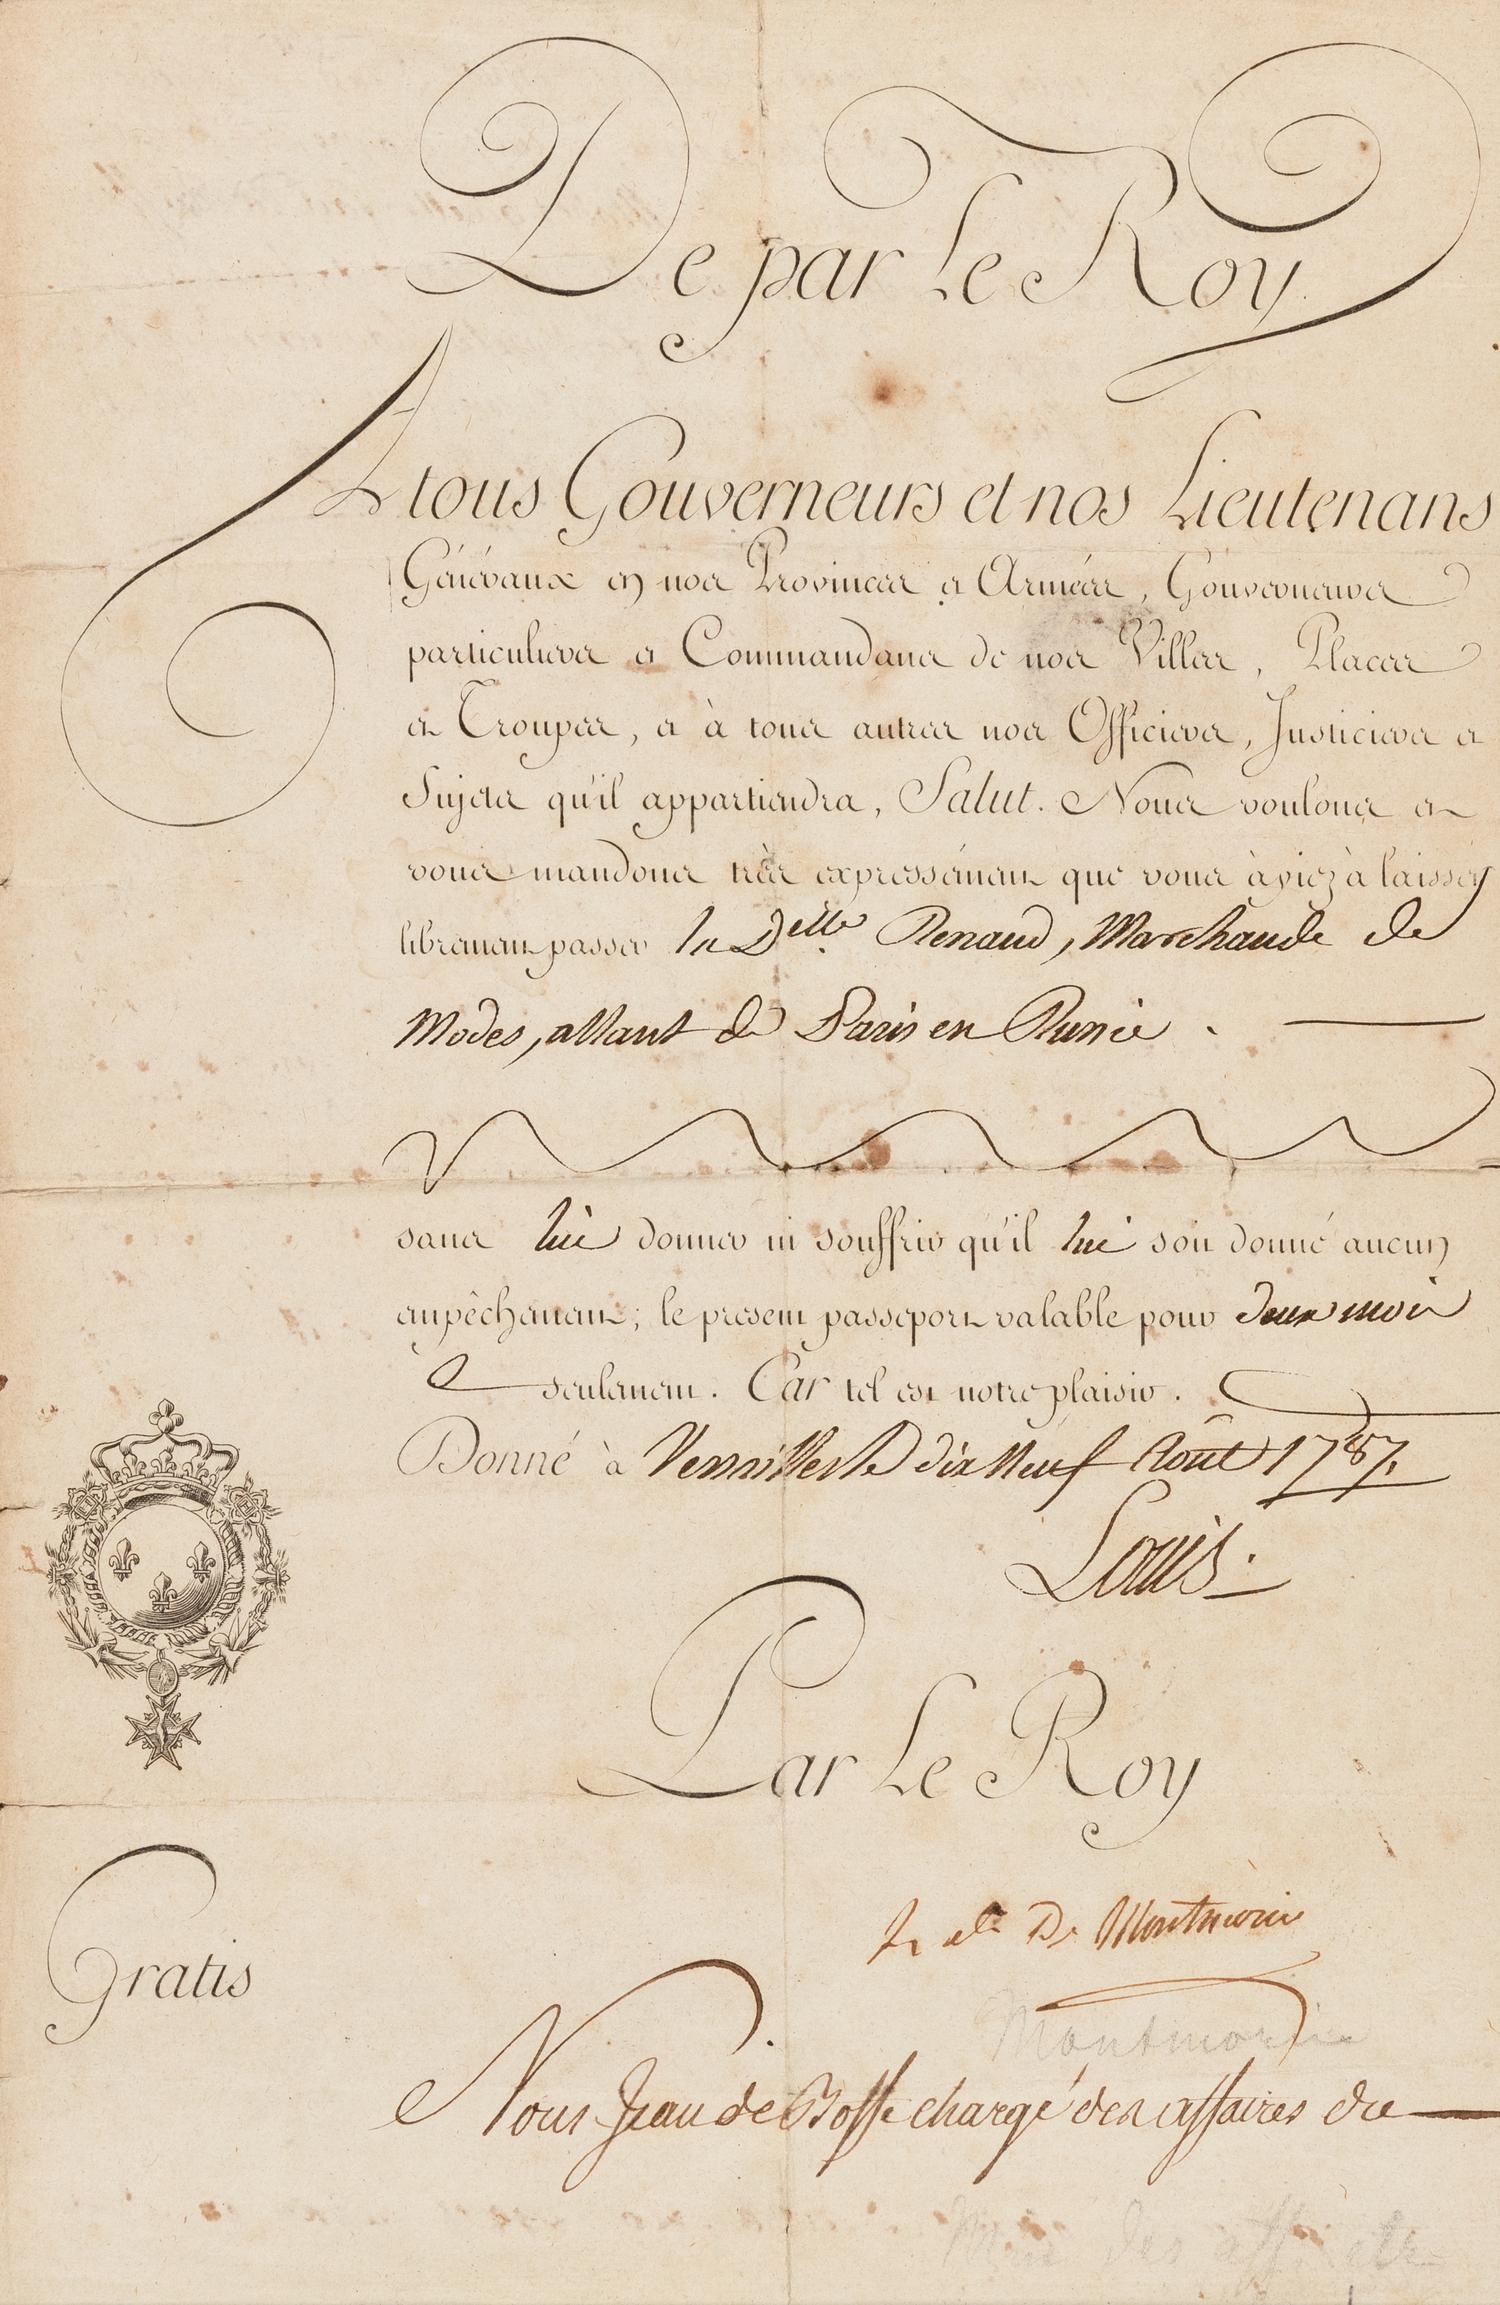 De par Le Roy
A tous Gouverneurs et nos Lieutenans
Généraux en nos Provinces et Armées, Gouverneurs
particuliers et Commandans de nos Villes, Places
et Troupes, et à tous autres nos Officiers, Justiciers et
Sujets qu'il appartiendra, Salut. Nous voulons et
vous mandons très expressément que vous àyiez à laisser
librement passer la Delle Renaud, Marchande de
Modes, allant de Paris en Russie.
sans lui donner ni souffrir qu'il lui soit donné aucun
empêchement; le present passeport valable pour deux mois
seulement. Car tel est notre plaisir.
Donné à Versailles le dix Neuf Août 1787.
Louis.
Par Le Roy
De Montmorin
Gratis
Montmorin
Nous Jean de Bosse chargé des affaires de
Min des aff